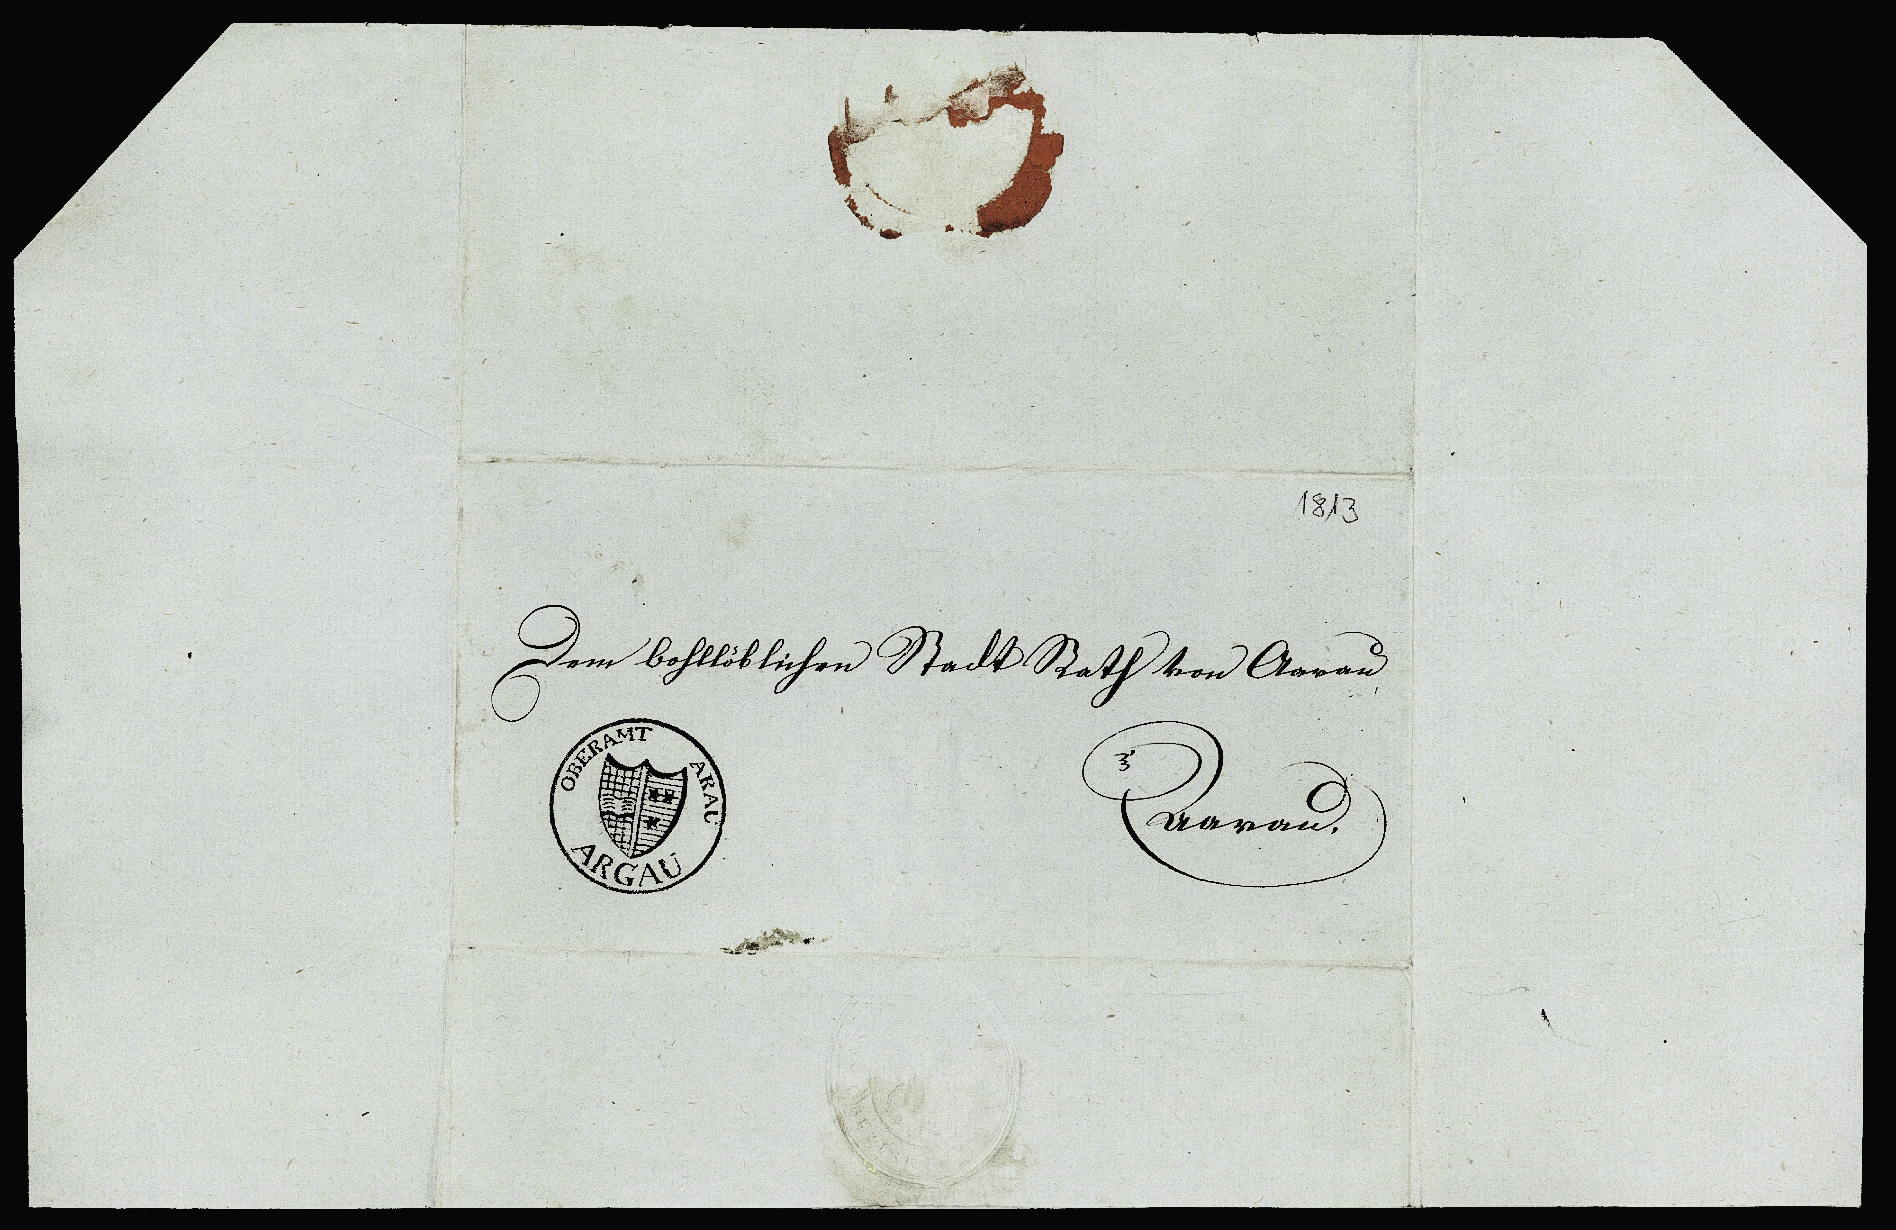 1813
Dem wohllöblichen Stadt Rath von Aarau
OBERAMT ARAU
ARGAU
Aarau.